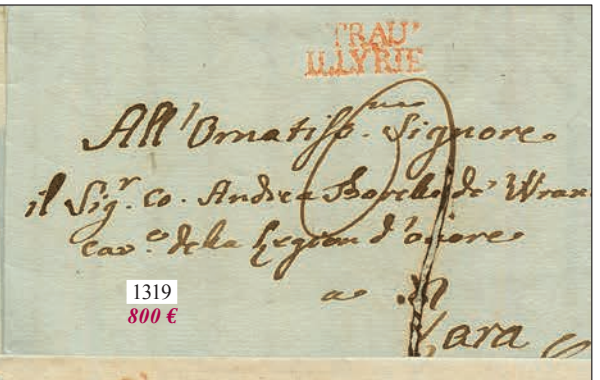 TRAU'
ILLYRIE
All' Ornatiss. mo Signore
il Sig.r Co. Andrea Borelli de' Wran
cav.o della Legion d'onore
a
Zara
1319
800 €